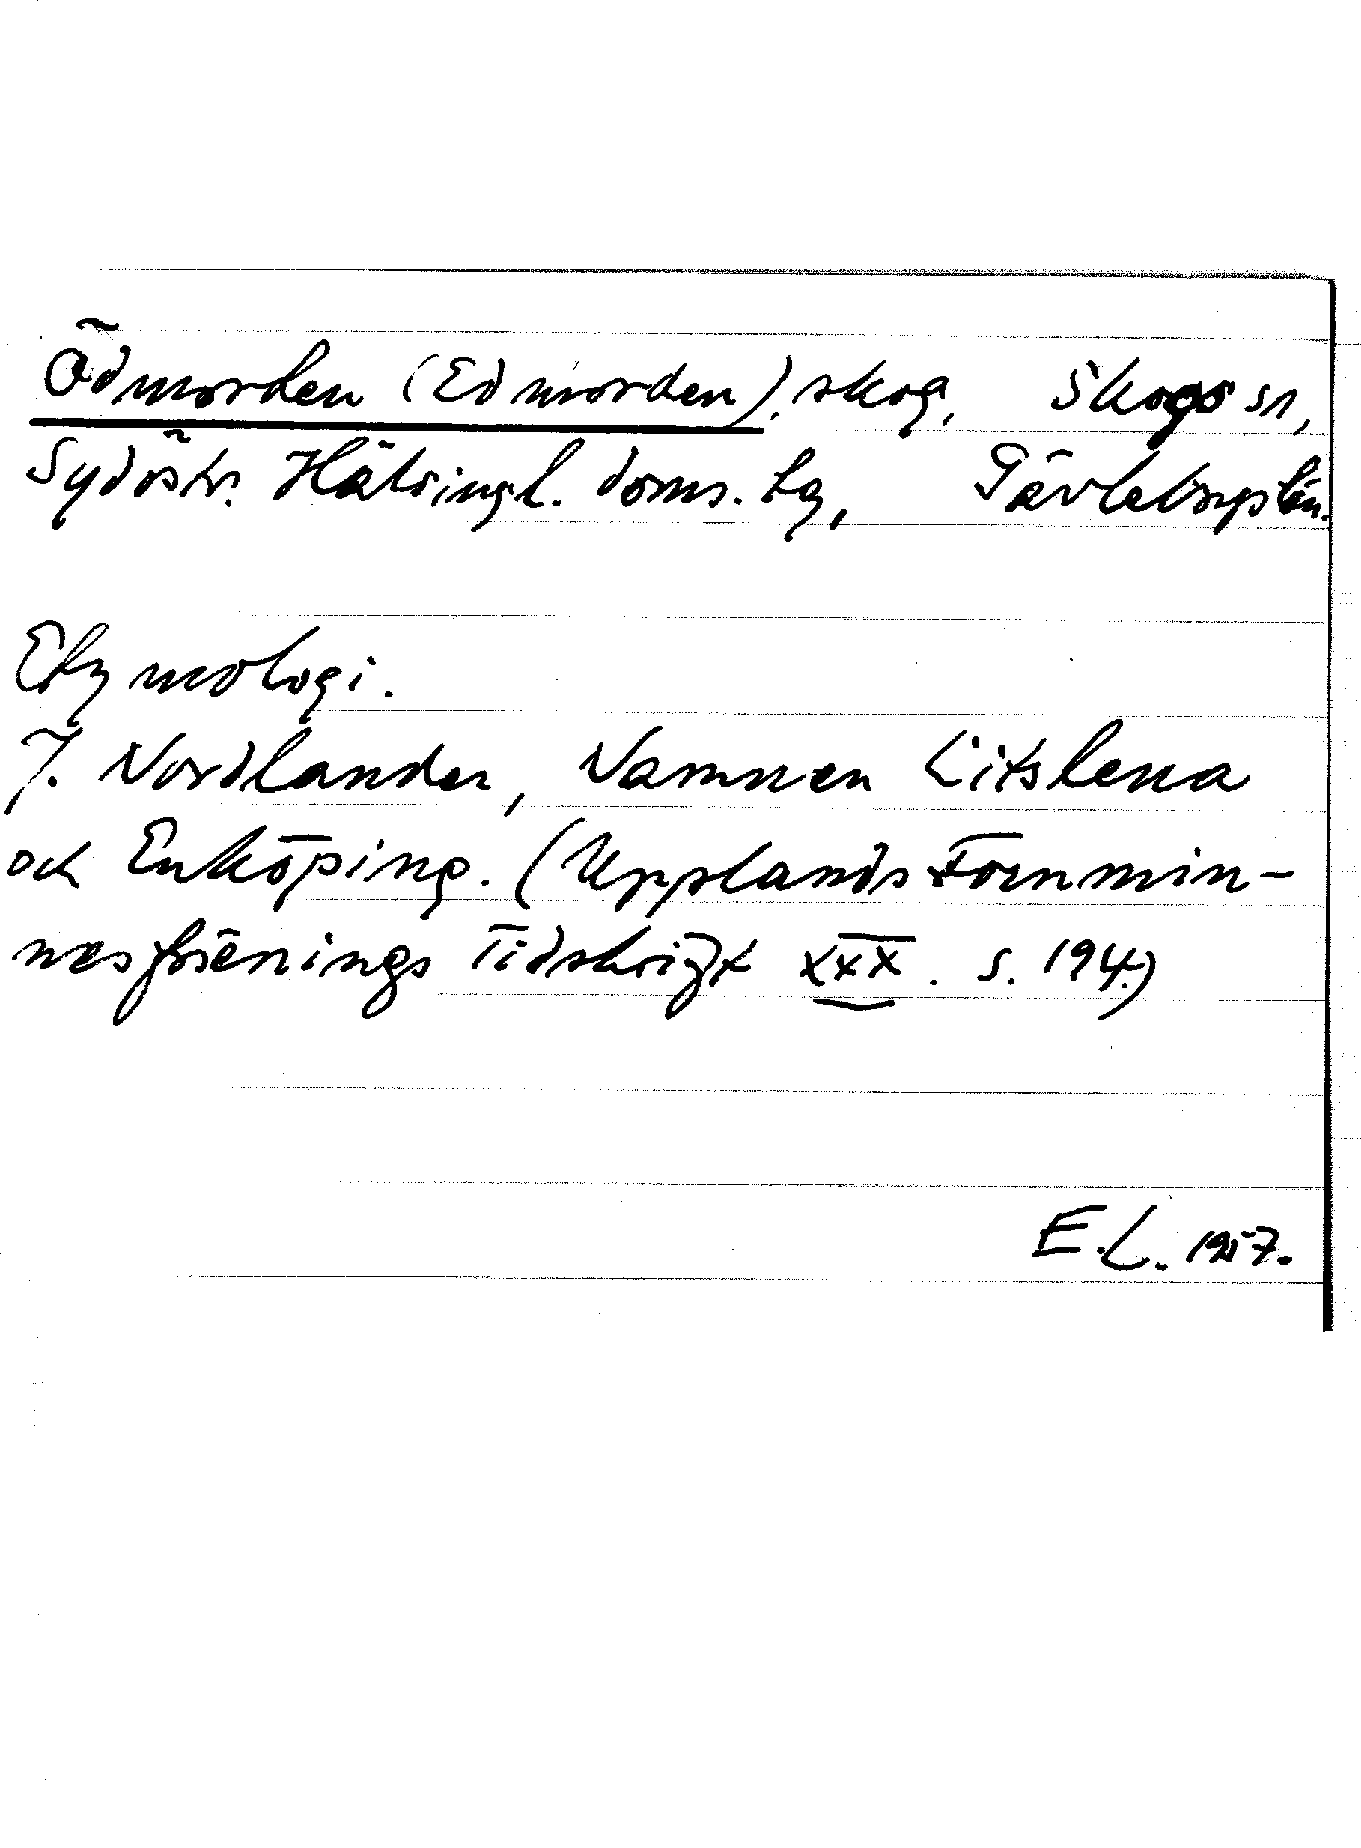 Ödmorden (Edmorden), skog, Skogs sn,
Sydöstr. Hälsingl. doms. Lg, Gävleborgs län.
Etymologi.
J. Nordlander, Namnen Litslena
och Enköping. (Upplands Fornmin-
nesförenings Tidskrift XXX. s. 194.)
E.L. 1957.